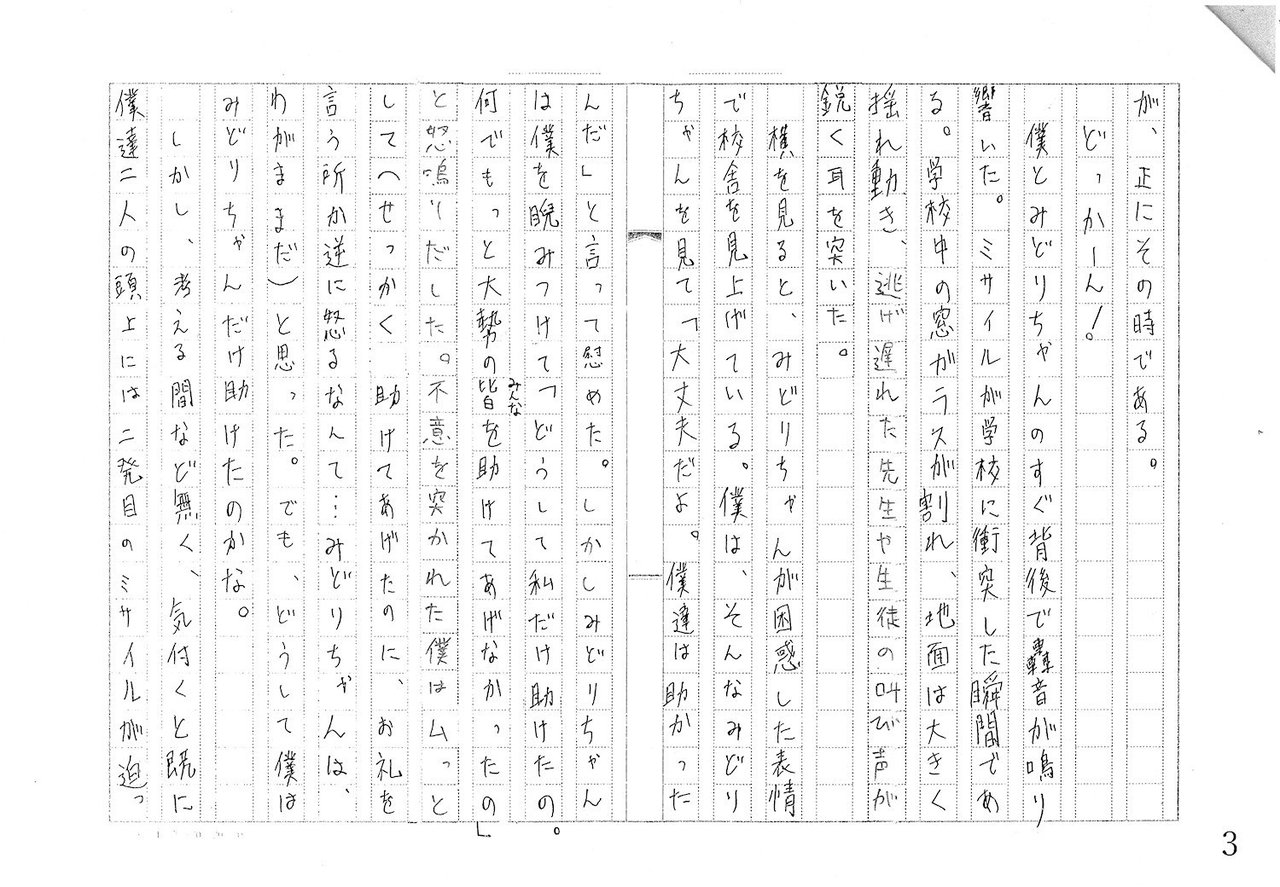 が、正にその時である。
どっかーん！
僕とみどりちゃんのすぐ背後で轟音が鳴り
響いた。ミサイルが学校に衝突した瞬間であ
る。学校中の窓ガラスが割れ、地面は大きく
揺れ動き、逃げ遅れた先生や生徒の叫び声が
鋭く耳を突いた。
横を見ると、みどりちゃんが困惑した表情
で校舎を見上げている。僕は、そんなみどり
ちゃんを見て「大丈夫だよ。僕達は助かった
んだ」と言って慰めた。しかしみどりちゃん
は僕を睨みつけて「どうして私だけ助けたの。
何でもっと大勢の皆を助けてあげなかったの」
みんな
と怒鳴りだした。不意を突かれた僕はムっと
して（せっかく助けてあげたのに、お礼を
言う所か逆に怒るなんて…みどりちゃんは、
わがままだ）と思った。でも、どうして僕は
みどりちゃんだけ助けたのかな。
しかし、考える間など無く、気付くと既に
僕達二人の頭上には二発目のミサイルが迫っ
3